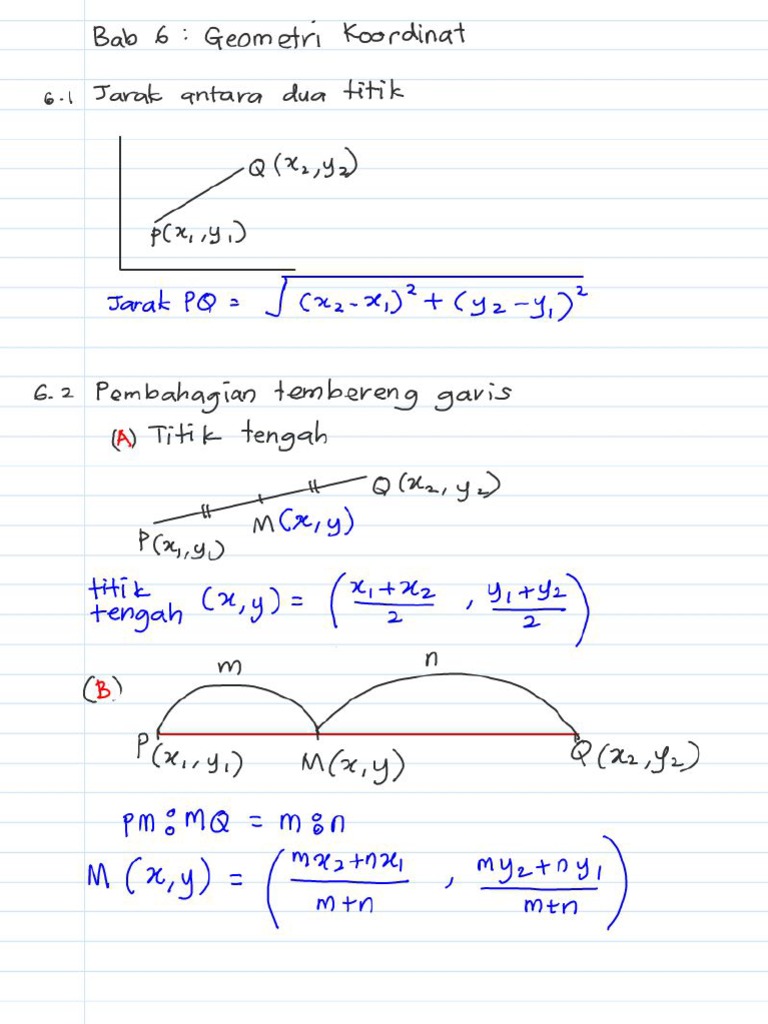 Bab 6 : Geometri Koordinat
6.1 Jarak antara dua titik
Q(x₂,y₂)
P(x₁,y₁)
Jarak PQ = √(x₂-x₁)² + (y₂-y₁)²
6.2 Pembahagian tembereng garis
(A) Titik tengah
Q(x₂,y₂)
M(x,y)
P(x₁,y₁)
titik tengah (x,y) = ( x₁+x₂/2 , y₁+y₂/2 )
m n
(B)
P(x₁,y₁) M(x,y) Q(x₂,y₂)
PM : MQ = m : n
M (x,y) = ( mx₂+nx₁/m+n , my₂+ny₁/m+n )